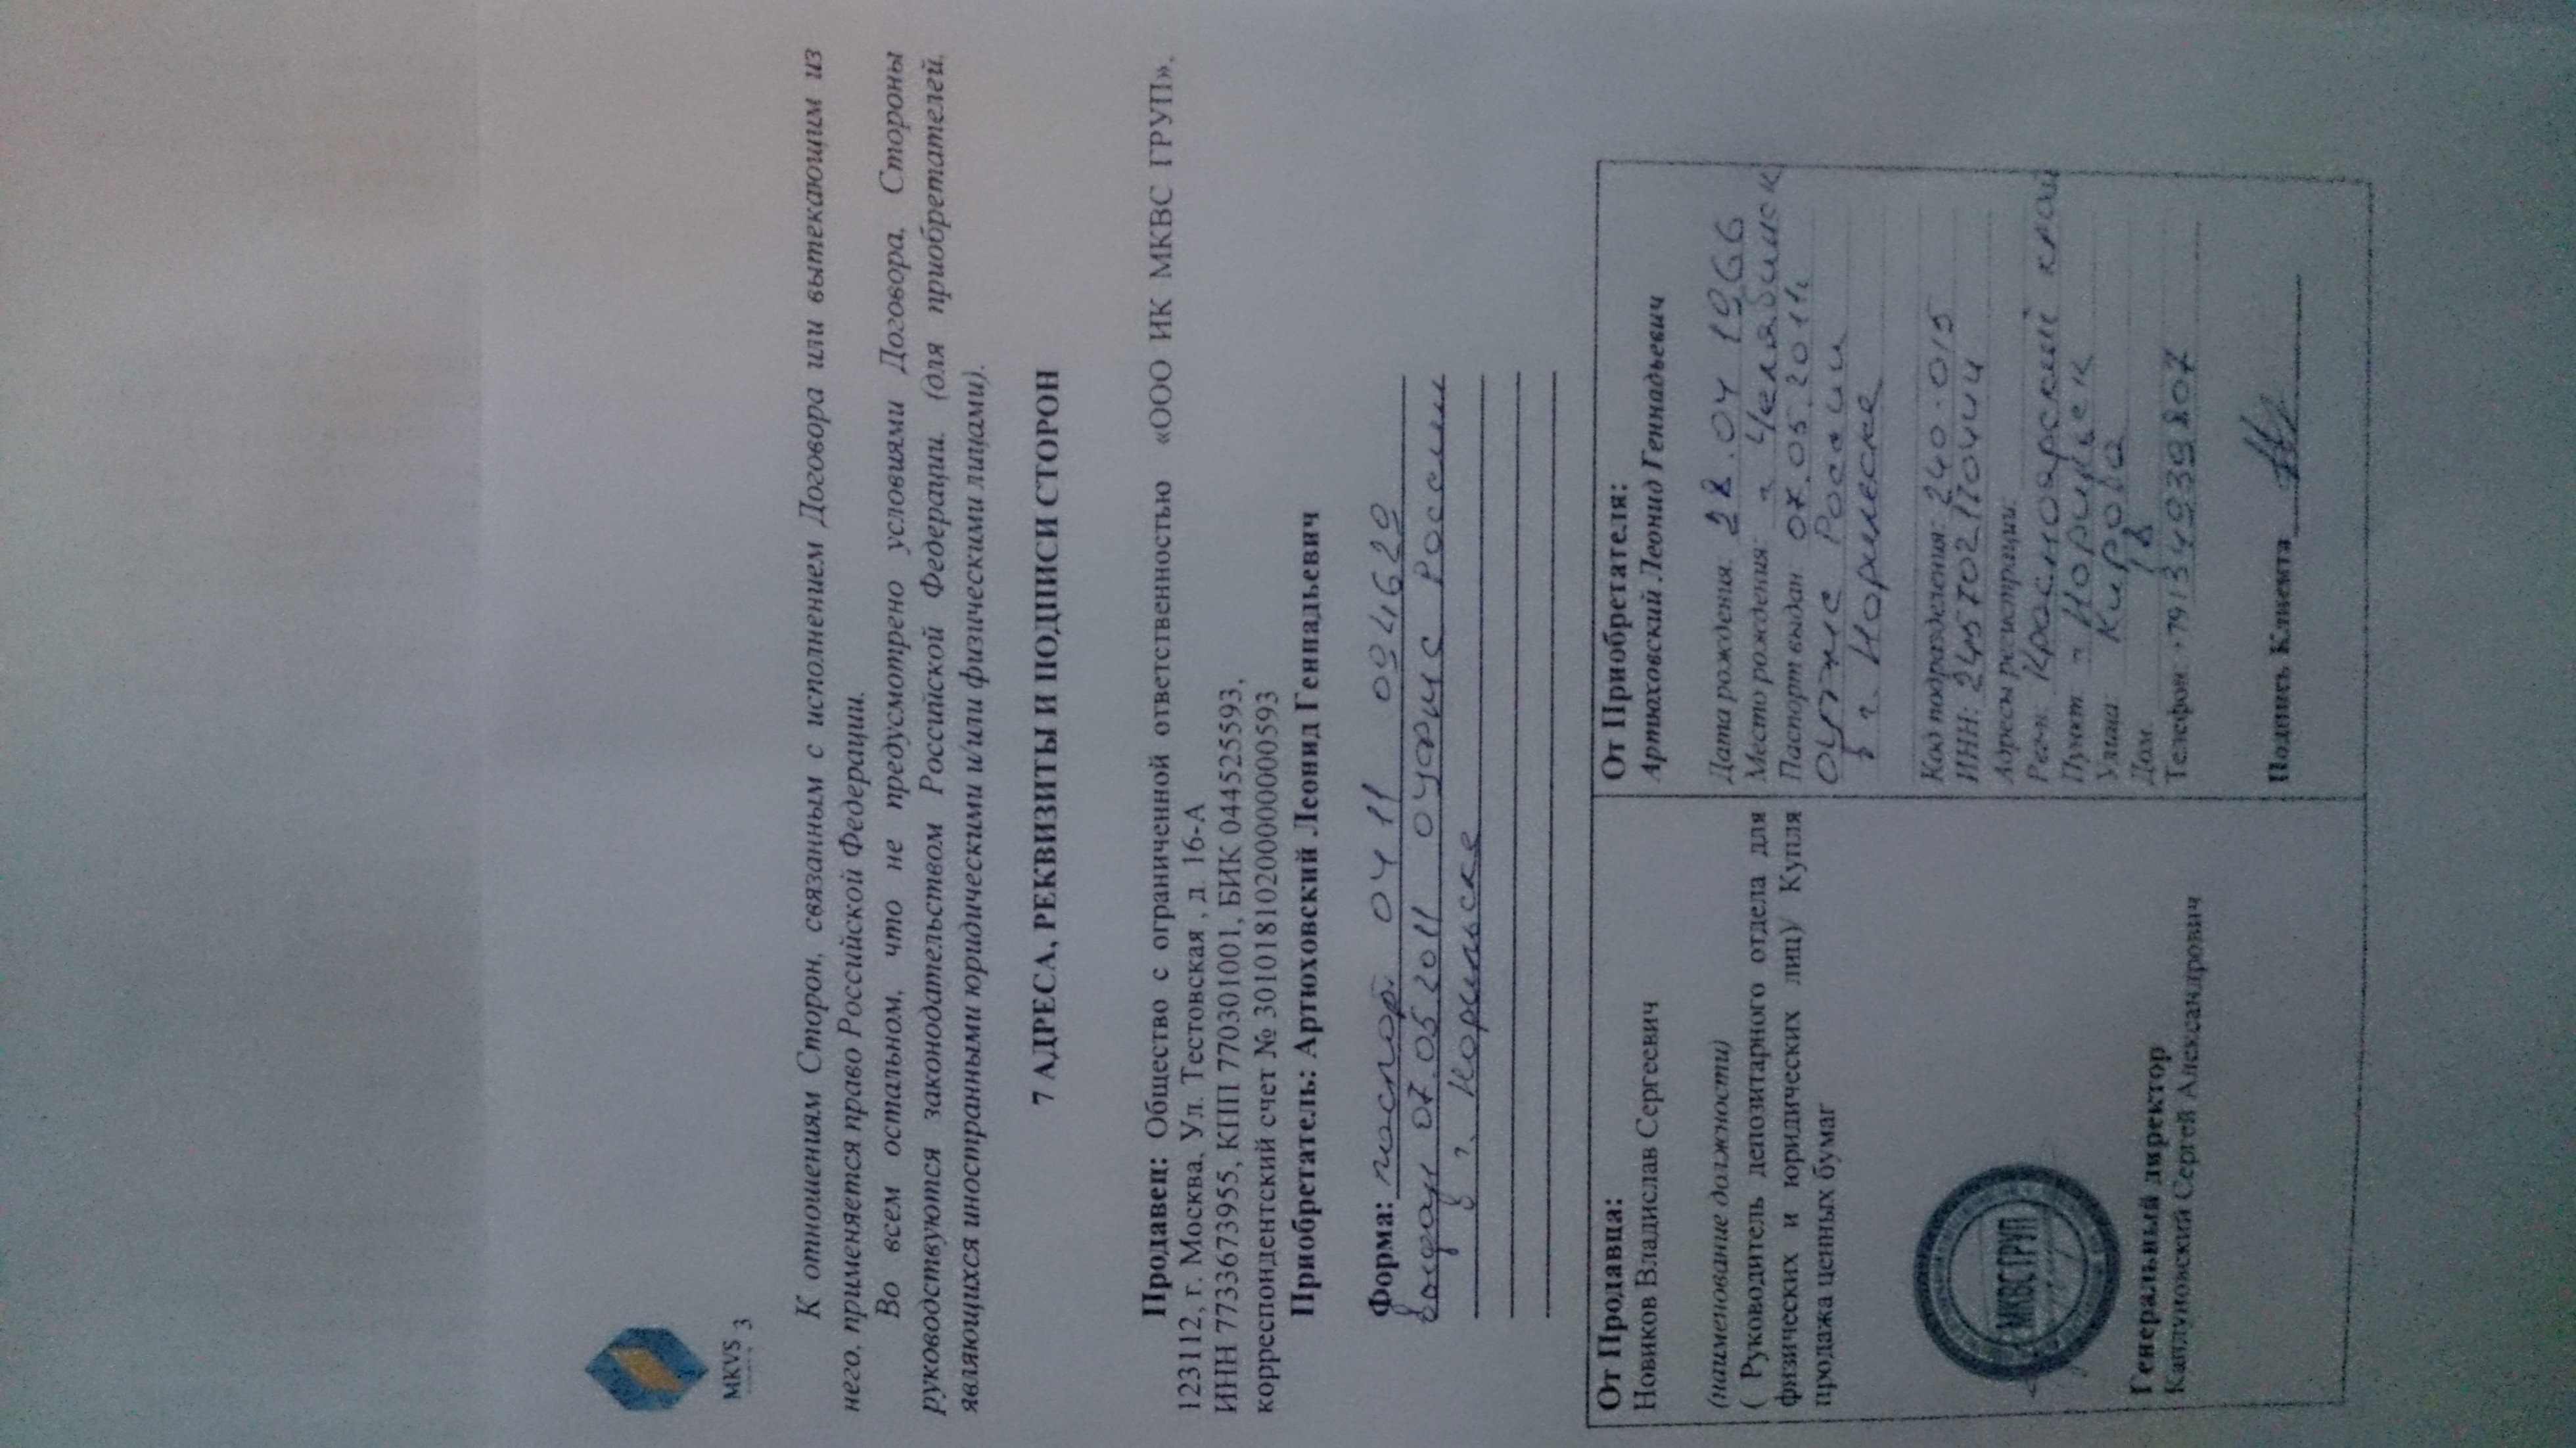 MKVS
3
К отношениям Сторон, связанным с исполнением Договора или вытекающим из
него, применяется право Российской Федерации.
Во всем остальном, что не предусмотрено условиями Договора, Стороны
руководствуются законодательством Российской Федерации. (для приобретателей,
являющихся иностранными юридическими и/или физическими лицами).
7 АДРЕСА, РЕКВИЗИТЫ И ПОДПИСИ СТОРОН
Продавец: Общество с ограниченной ответственностью «ООО ИК МКВС ГРУП»,
123112, г. Москва, Ул. Тестовская , д. 16-А
ИНН 7733673955, КПП 770301001, БИК 044525593,
корреспондентский счет № 30101810200000000593
Приобретатель: Артюховский Леонид Геннадьевич
Форма: паспорт 0411 094629
выдан 07.05 2011 оуфмс России
в г. Норильске
От Продавца:
Новиков Владислав Сергеевич
(наименование должности)
( Руководитель депозитарного отдела для
физических и юридических лиц) Купля
продажа ценных бумаг
МКВСГРУП
Генеральный директор
Каплуновский Сергей Александрович
От Приобретателя:
Артюховский Леонид Геннадьевич
Дата рождения: 28.04 1966
Место рождения: г Челябинск
Паспорт выдан: 07.05.2011г
оуфмс России
в г. Норильске
Код подразделения: 240.015
ИНН:
Адрес регистрации:
Рег-н: Красноярский край
Пункт: г Норильск
Улица: Кирова
Дом: 18
Телефон: +79134939807
Подпись Клиента